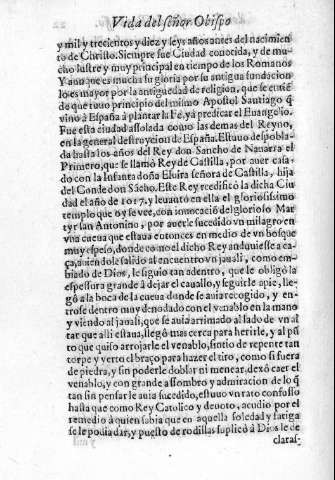 Vida del señor Obispo
y mil y trecientos y diez y seys años antes del nacimien
to de Christo. Siempre fue Ciudad conocida, y de mu-
cho lustre y muy principal en tiempo de los Romanos
Y aunque es mucha su gloria por su antigua fundacion
lo es mayor por la antiguedad de religion, que se entiẽ
de que tuuo principio del mismo Apostol Santiago q̃
vino à España à plantar la Fè, yà predicar el Euangelio.
Fue esta ciudad assolada como las demas del Reyno,
en la general destruycion de España. Estuuo despobla-
da hasta los años del Rey don Sancho de Nauarra el
Primero, que se llamò Rey de Castilla, por auer casa-
do con la Infanta doña Eluira señora de Castilla, hija
del Conde don Sãcho. Este Rey reedificò la dicha Ciu
dad el año de 1017. y leuantò en ella el gloriosissimo
templo que oy se vee, con inuocaciõ del glorioso Mar
tyr san Antonino, por auerle sucedido vn milagro en
vna cueua que estaua entonces en medio de vn bosque
muy espeso, donde como el dicho Rey anduuiesse a ca-
ça, auiendole salido al encuentro vn jauali, como em-
biado de Dios, le siguio tan adentro, que le obligò la
espessura grande à dejar el cauallo, y seguirle apie, lle-
gò a la boca de la cueua dunde se auia recogido, y en-
trose dentro muy denodado con el venablo en la mano
y viendo al jauali, que se auia arrimado al lado de vn al
tar que alli estaua, llegò mas cerca para herirle, y al pũ
to que quiso arrojarle el venablo, sintio de repente tan
torpe y yerto el braço para hazer el tiro, como si fuera
de piedra, y sin poderle doblar ni menear, dexò caer el
venablo, y con grande assombro y admiracion de lo q̃
tan sin pensarle auia sucedido, estuuo vn rato confuso
hasta que como Rey Catolico y deuoto, acudio por el
remedio à quien sabia que en aquella soledad y fatiga
se le podia dar, y puesto de rodillas suplicò à Dios le de
claras-